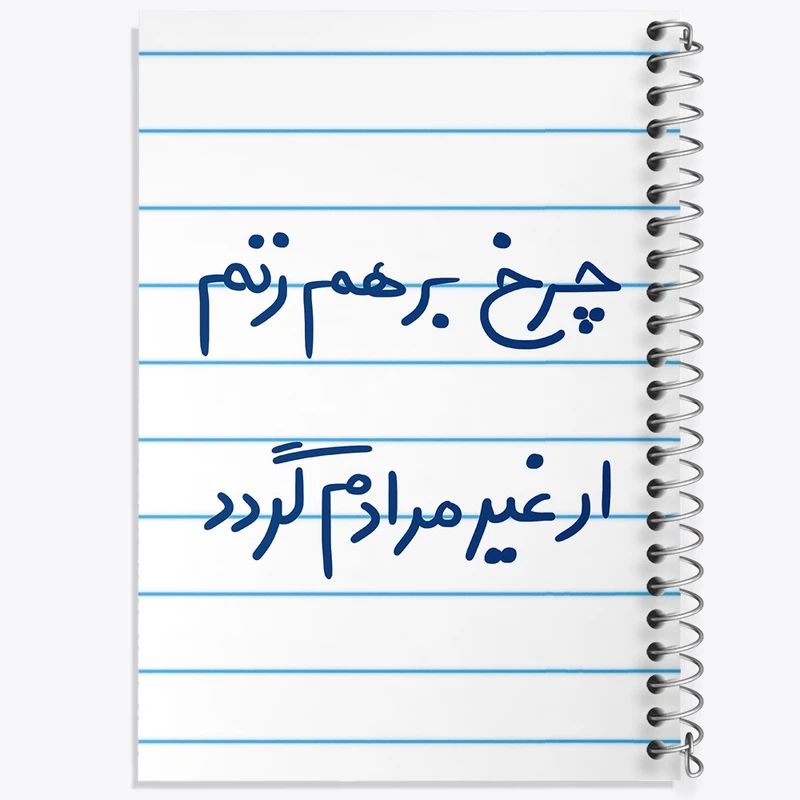 چرخ برهم زنم
ار غیر مرادم گردد